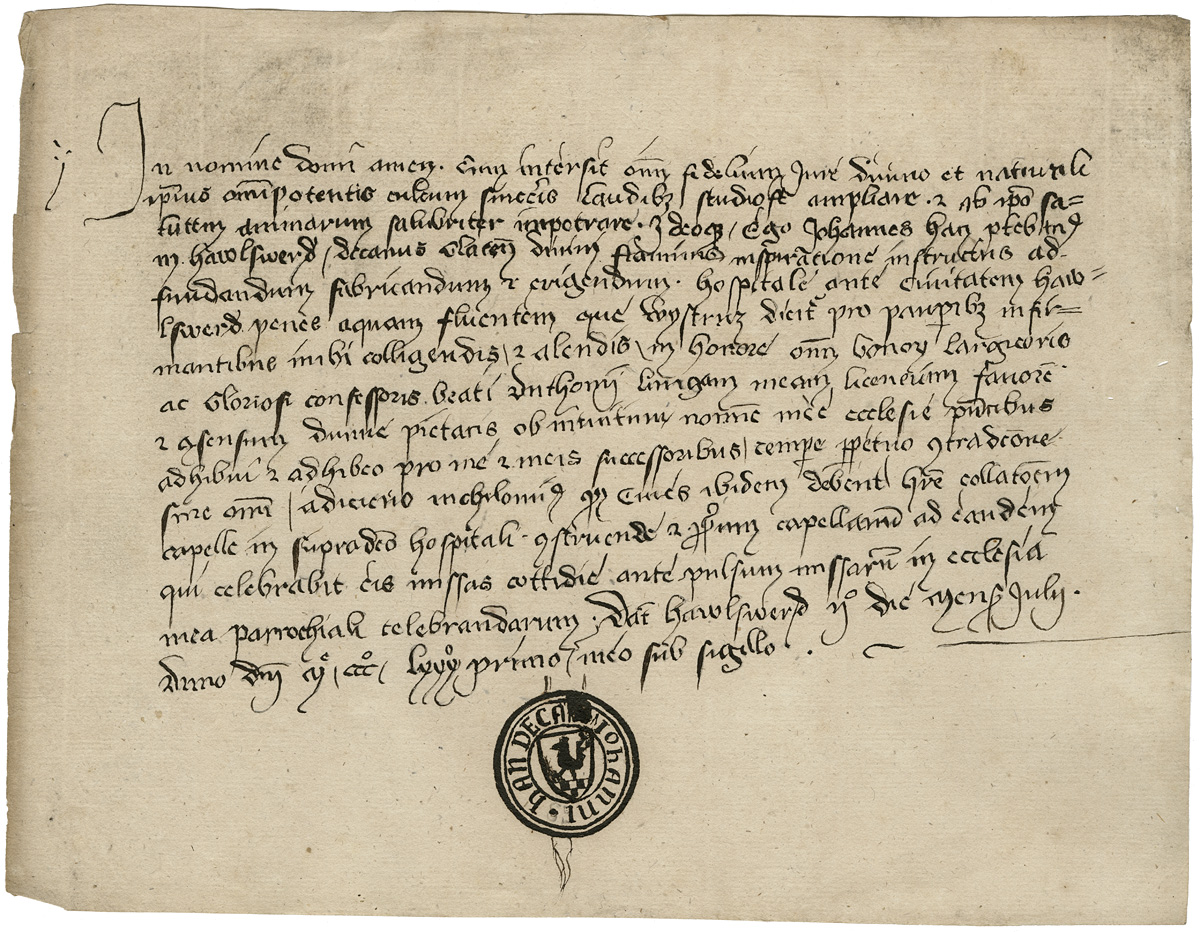 In nomine domi amen. Cum intersit omi fidelium Jure divino et naturali
ipius omipotentis cultum sinceris laudibz studiose ampliare. et ab ipo sa=
lutem animarum salubriter impetrare. Ideoqz / Ego Johannes han pleb
in hawlswerd / decanus Glacen divini flaminis inspiratione instructus ad
fundandum fabricandum et erigendum. hospitale ante Civitatem haw=
lswerd penes aquam fluentem que wystricz dicit pro paupibz infir=
mantibus inibi colligendis, et alendis, in honore omi bonor largitoris
ac Gloriosi confessoris beati Anthonij liniam meam licenciam favore
et consensum divine pietatis ob intuitum nomie mee ecclesie
adhibui et adhibeo pro me et meis successoribus, tempe ppetuo contradcone
sine omi / adiciens nichilomi qz Cives ibidem debent hre collatoem
capelle in supradcto hospitali. construende et capellanum ad eandem
qui celebrabit eis missas cottidie ante pulsum missaru in ecclesia
mea parrochiali celebrandarum. Dat hawlswerd ijo die Mens Julij.
Anno dni Mo, cccc, lxxx primo, meo sub sigillo.
Johanni · han deca